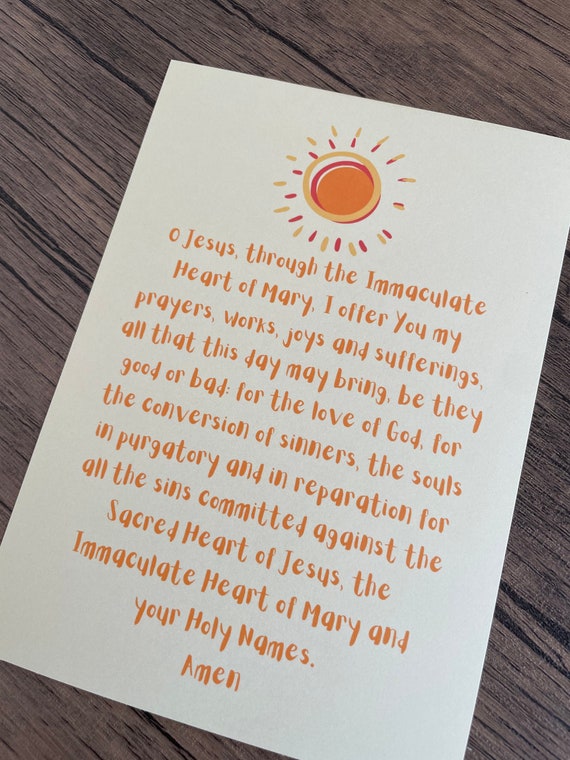 O Jesus, through the Immaculate
Heart of Mary, I offer You my
prayers, works, joys and sufferings,
all that this day may bring, be they
good or bad: for the love of God, for
the conversion of sinners, the souls
in purgatory and in reparation for
all the sins committed against the
Sacred Heart of Jesus, the
Immaculate Heart of Mary and
Your Holy Names.
Amen